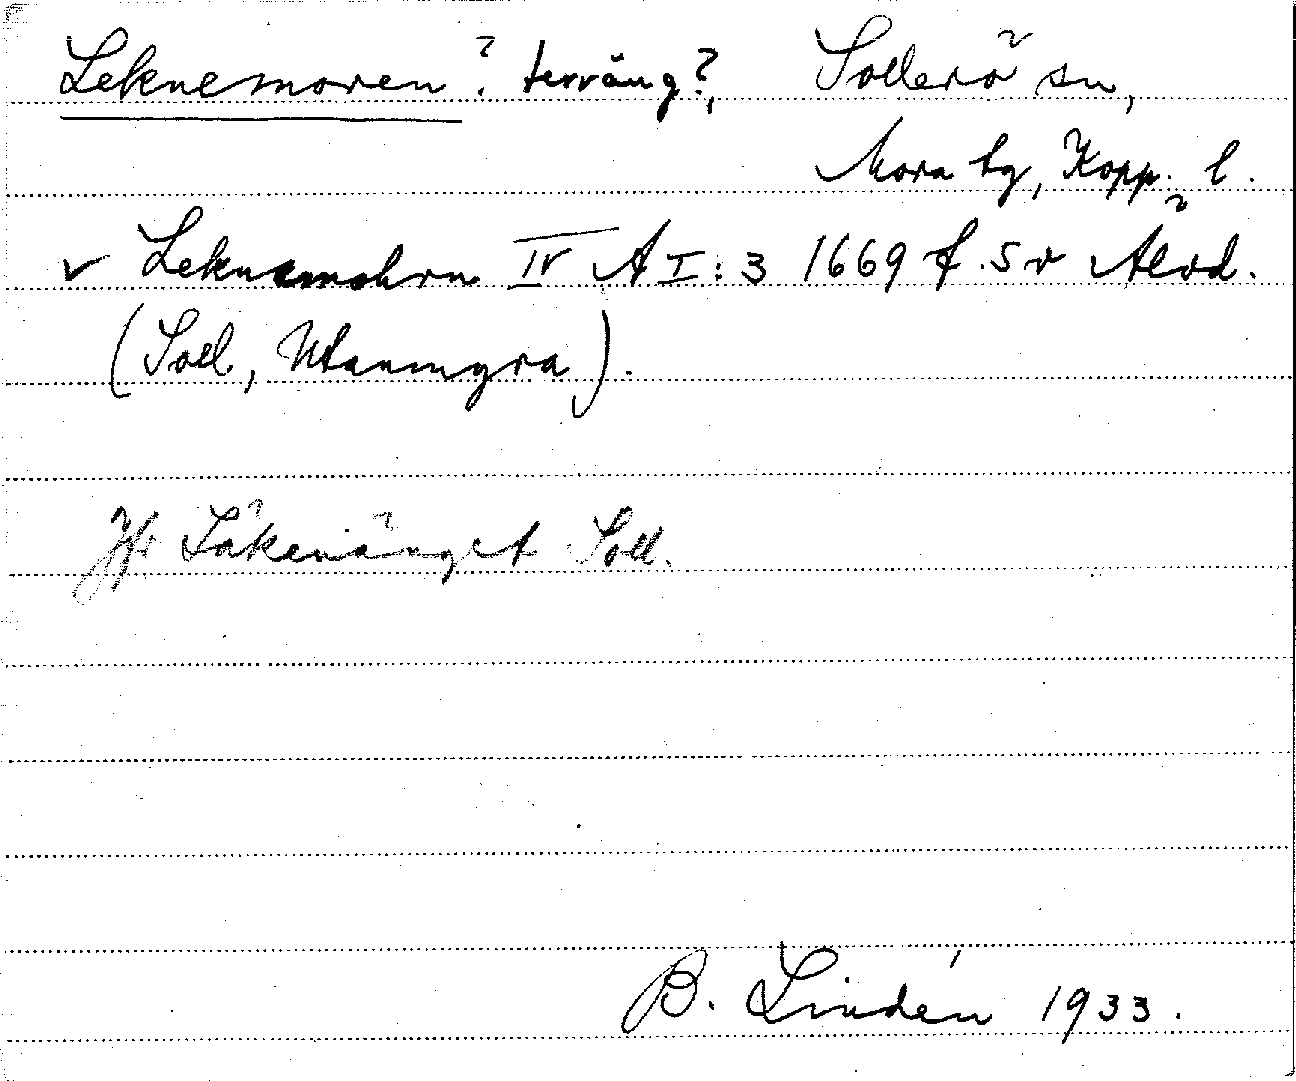 Leknemoren? terräng?, Sollerö sn,
Mora tg, Kopp. l.
v Leknemohrn IV A I: 3 1669 f. 5 v Älvd.
(Soll, Utanmyra).
Jfr Läkenänget Soll.
B. Lindén 1933.